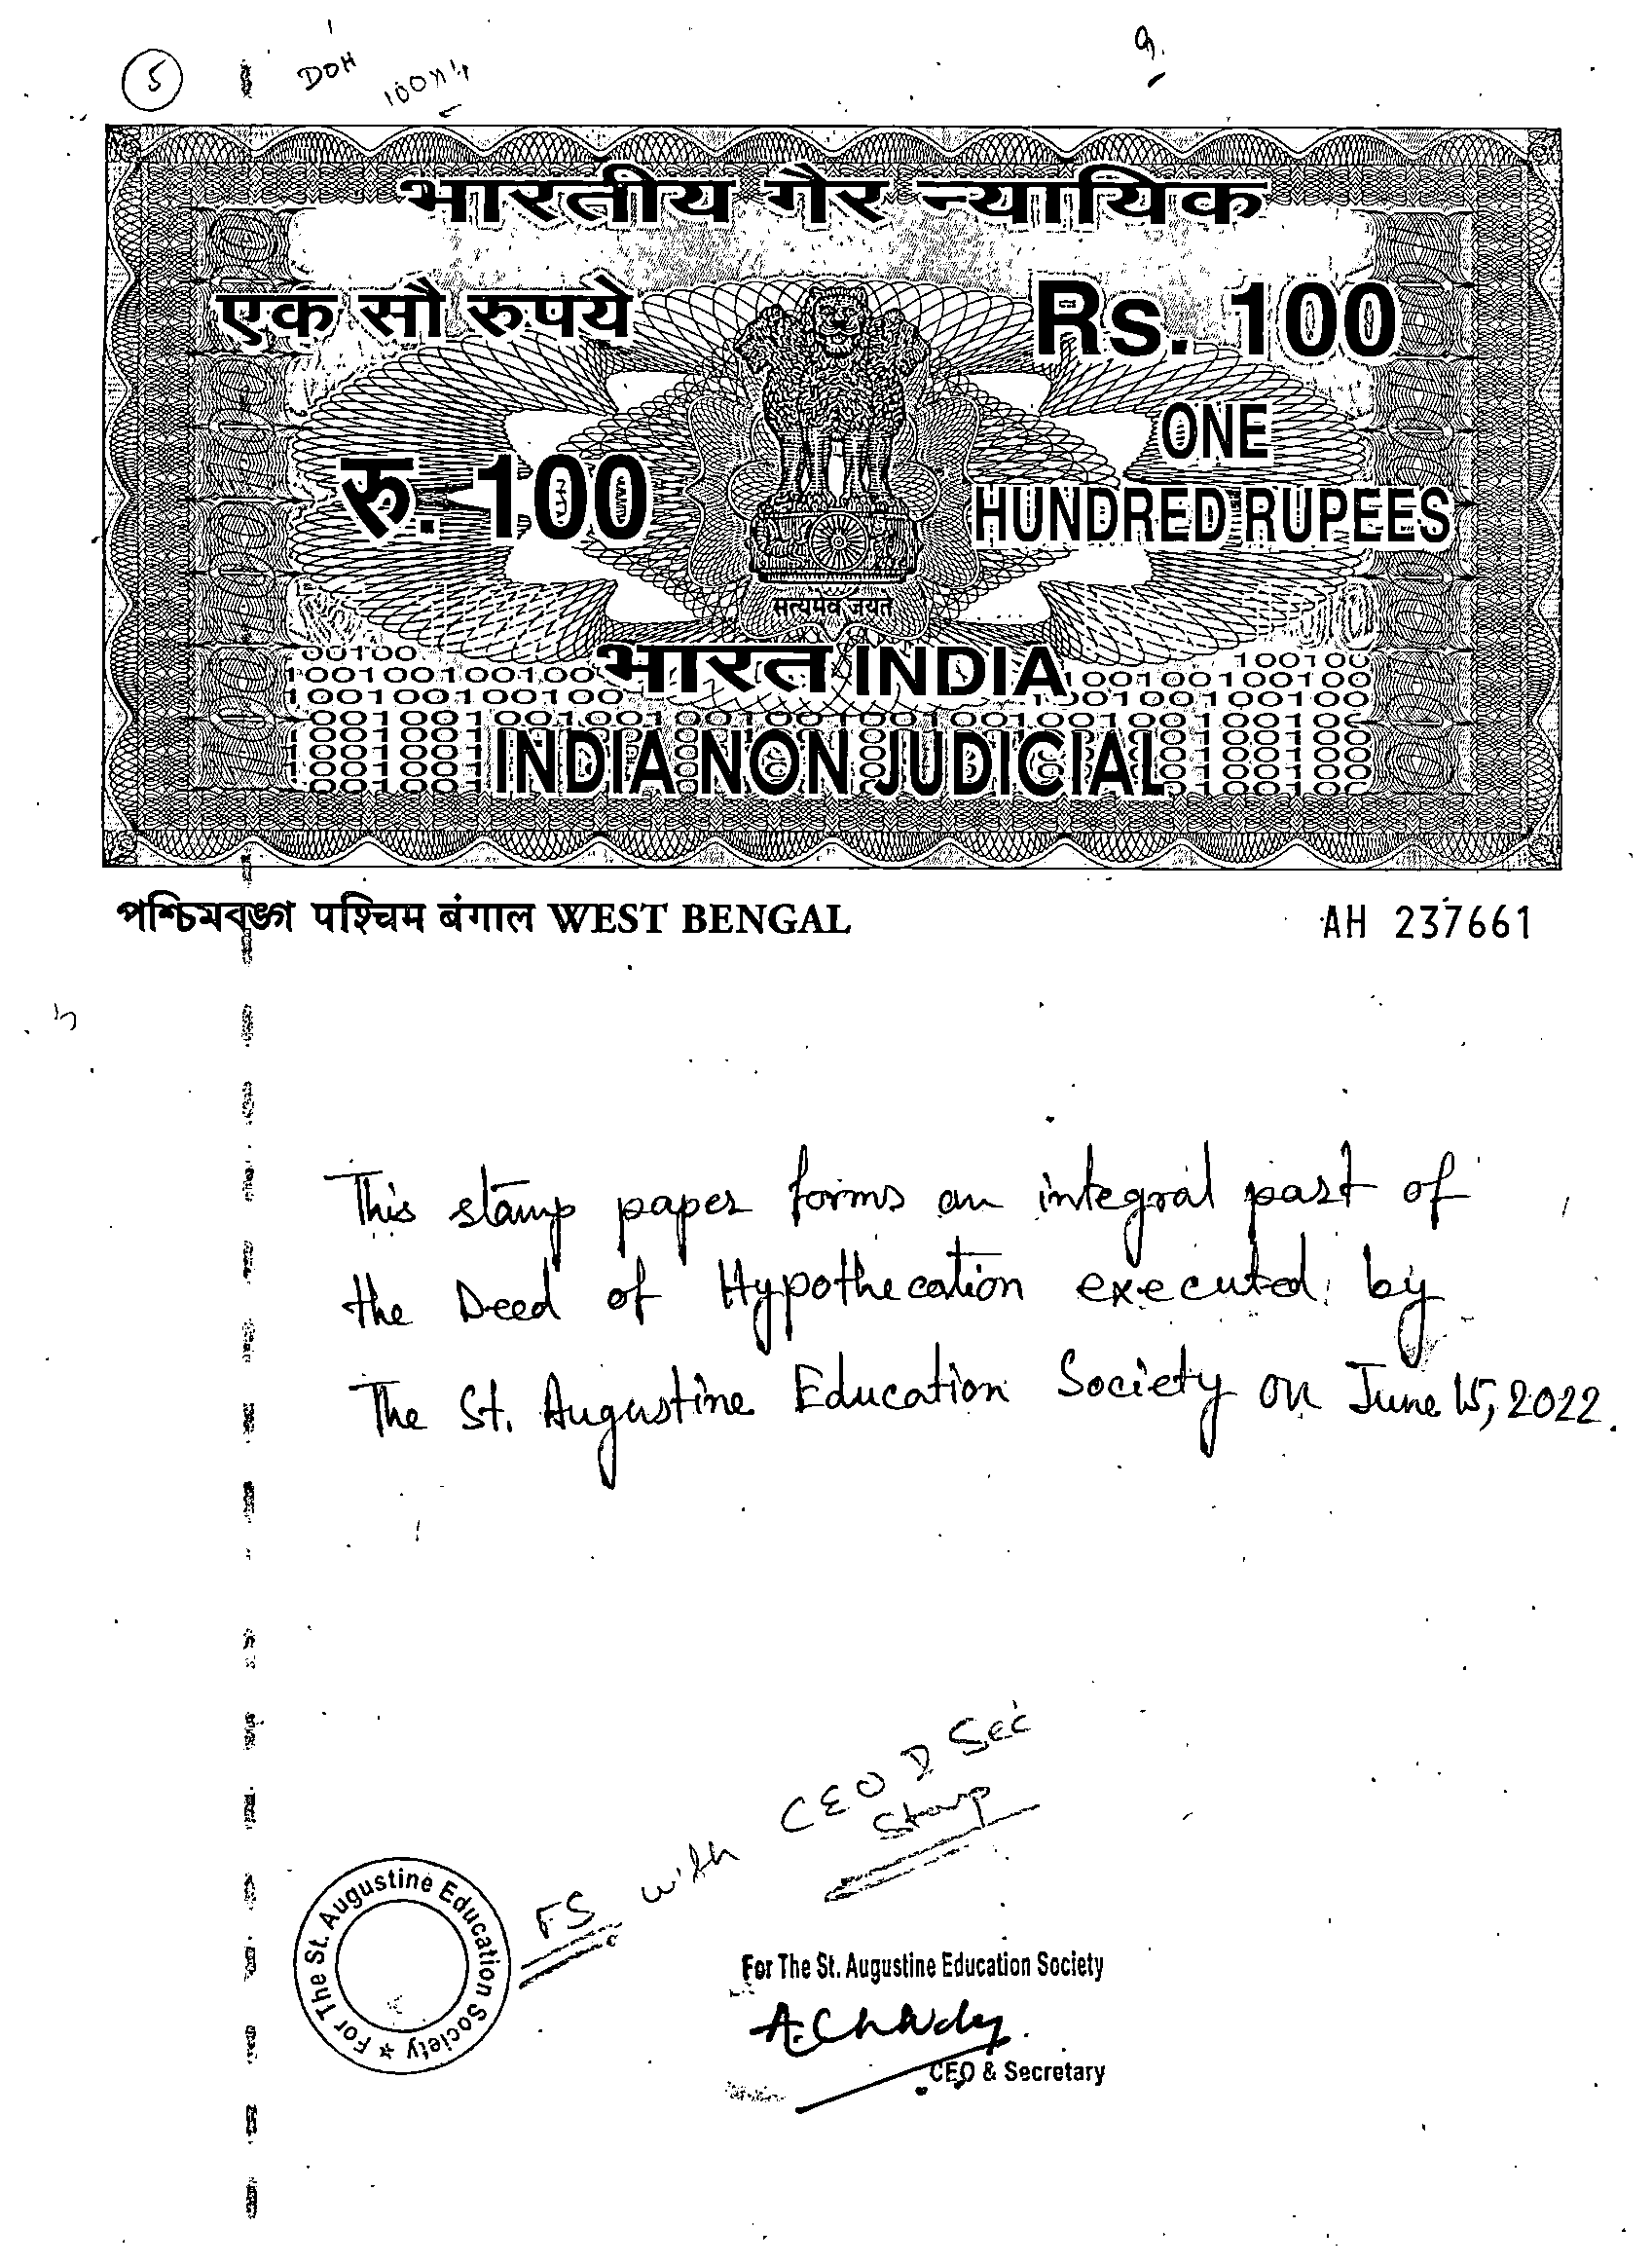 5
DOH
100x4
9.
भारतीय गैर न्यायिक
एक सौ रुपये
Rs. 100
रु. 100
ONE
HUNDRED RUPEES
सत्यमेव जयते
भारत INDIA
INDIA NON JUDICIAL
পশ্চিমবঙ্গ पश्चिम बंगाल WEST BENGAL
AH 237661
This stamp paper forms an integral part of
the Deed of Hypothecation executed by
The St. Augustine Education Society on June 15, 2022.
FS with CEO & Sec
Stamp
For The St. Augustine Education Society
For The St. Augustine Education Society
CEO & Secretary